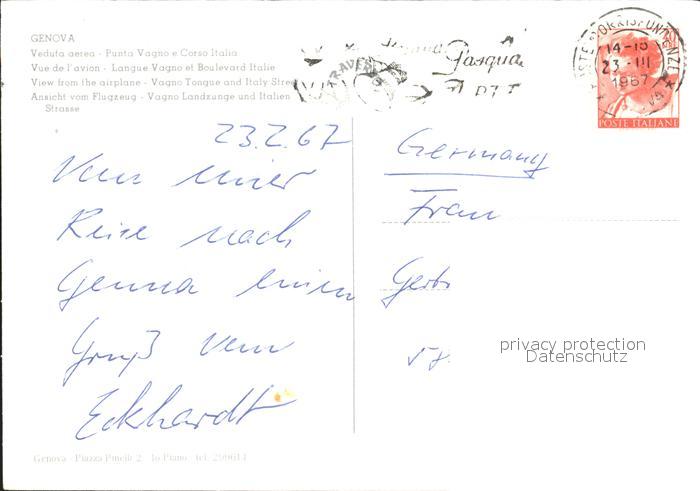 GENOVA
Veduta aerea - Punta Vagno e Corso Italia
Vue de l'avion - Langue Vagno et Boulevard Italie
View from the airplane - Vagno Tongue and Italy Stree
Ansicht vom Flugzeug - Vagno Landzunge und Italien
Strasse
Pasqua
14-15
23 -III
1967
POSTE ITALIANE
23.2.67
Von einer
Reise nach
Genua einen
Gruß von
Eckhardt
Germany
Frau
Gerti
privacy protection
Datenschutz
Genova - Piazza 2 - Io Piano - tel. 299614